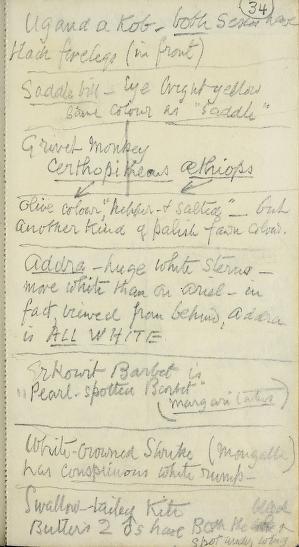 (34)
Uganda Kob - both Sexes have
black forelegs (in front)
Saddle bill - Eye bright yellow
same colour as "saddle"
Grivet Monkey
Cercopithecus æthiops
olive colour, "Pepper-&-salted" - but
another kind of palish fawn colour.
Addra - huge white sterns -
more white than on Ariel - in
fact, viewed from behind, Addra
is ALL WHITE
Erkowit Barbet is
"Pearl-spotted Barbet"
(margaritatus)
White-crowned Shrike (Mongalla)
has conspicuous white rump -
Swallow-tailed Kite
Butler's 2 ♂s have Both the
spot under wing